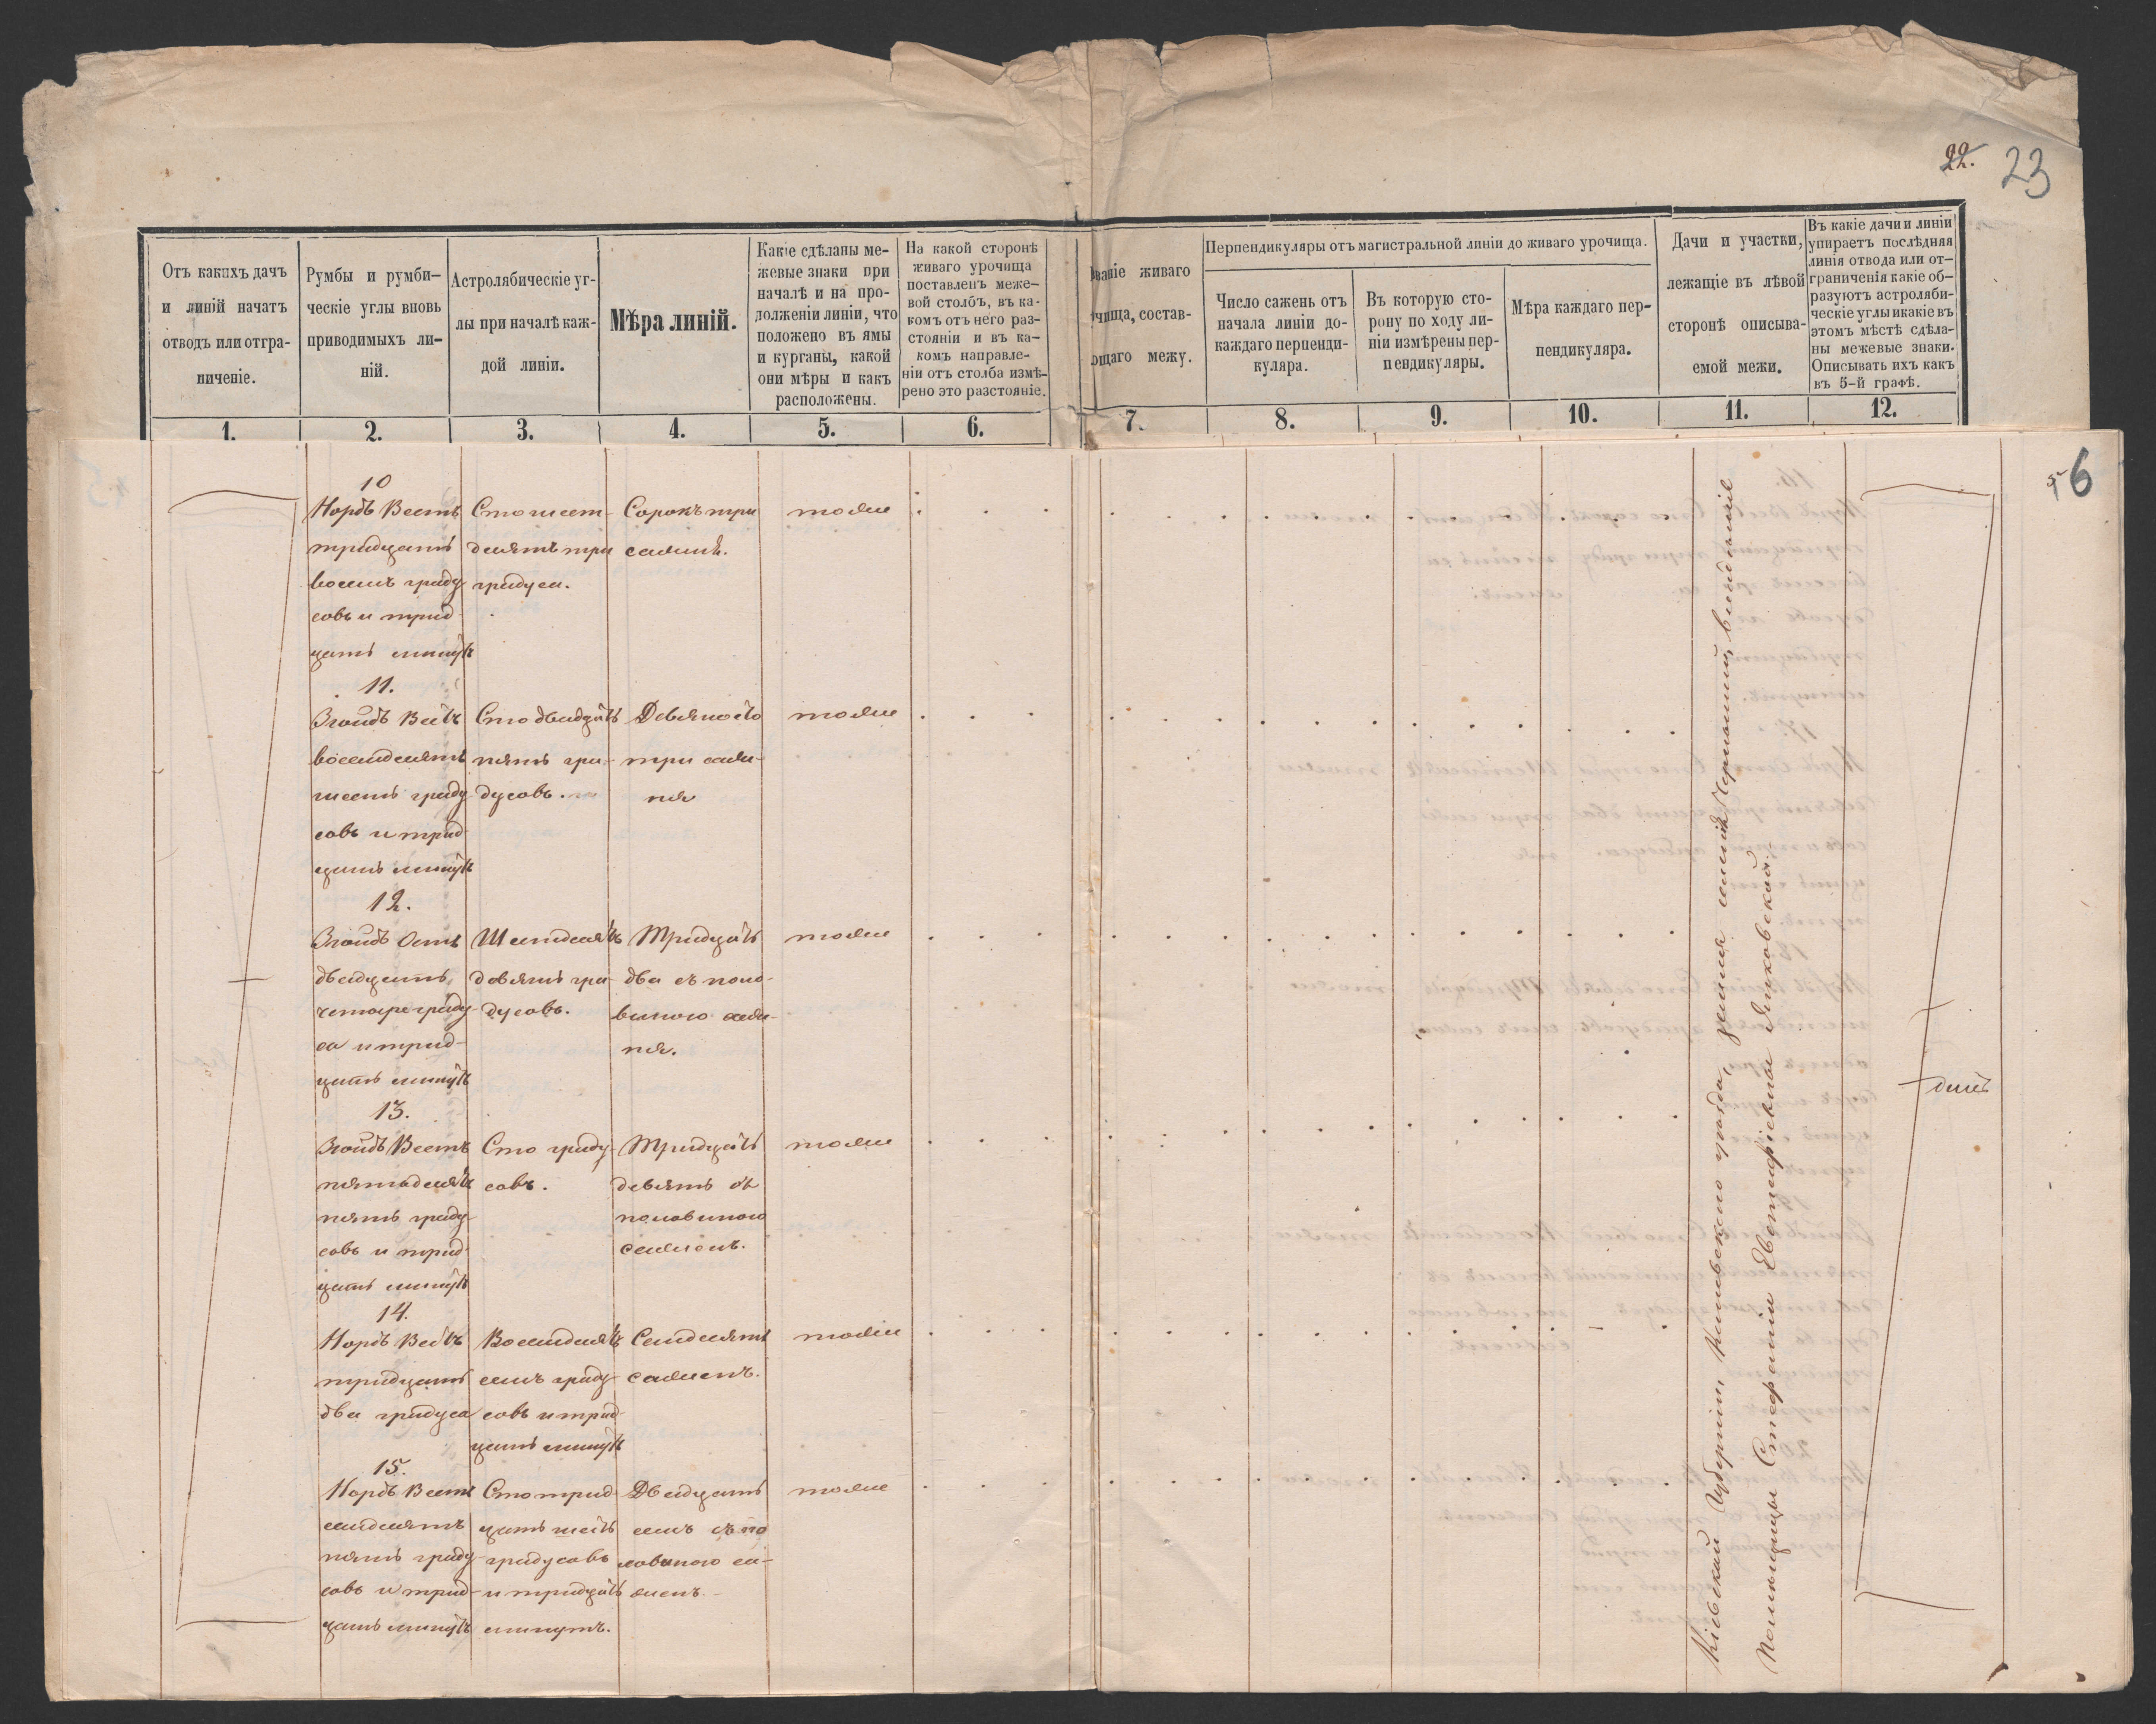 22. 23
Отъ какихъ дачъ
и линій начатъ
отводъ или отгра-
ниченіе.
Румбы и румби-
ческіе углы вновь
приводимыхъ ли-
ній.
Астролябическіе уг-
лы при началѣ каж-
дой линіи.
Мѣра линій.
Какіе сдѣланы ме-
жевые знаки при
началѣ и на про-
долженіи линіи, что
положено въ ямы
и курганы, какой
они мѣры и какъ
расположены.
На какой сторонѣ
живаго урочища
поставленъ меже-
вой столбъ, въ ка-
комъ отъ него раз-
стояніи и въ ка-
комъ направле-
ніи отъ столба измѣ-
рено это разстояніе.
званіе живаго
чища, состав-
ющаго межу.
Перпендикуляры отъ магистральной линіи до живаго урочища.
Число сажень отъ
начала линіи до-
каждаго перпенди-
куляра.
Въ которую сто-
рону по ходу ли-
ніи измѣрены пер-
пендикуляры.
Мѣра каждаго пер-
пендикуляра.
Дачи и участки,
лежащіе въ лѣвой
сторонѣ описыва-
емой межи.
Въ какіе дачи и линіи
упираетъ послѣдняя
линія отвода или от-
граниченія какіе об-
разуютъ астроляби-
ческіе углы и какіе въ
этомъ мѣстѣ сдѣла-
ны межевые знаки.
Описывать ихъ какъ
въ 5-й графѣ.
1. 2. 3. 4. 5. 6. 7. 8. 9. 10. 11. 12.
6
10
Нордъ Вестъ
тридцать
восемь граду
совъ и трид-
цать минутъ
Сто шест-
десятъ три
градуса.
Сорокъ три
сажня.
тоже
11.
Зюйдъ Вестъ
восемдесятъ
шесть граду
совъ и трид-
цать минутъ
Сто двадцать
пять гра-
дусовъ.
Девяносто
три саж-
ня
тоже
12.
Зюйдъ Остъ
двадцать
четыре граду-
са и трид-
цать минутъ
Шестдесятъ
девять гра-
дусовъ.
Тридцать
два съ поло-
виною саж-
ня.
тоже
13.
Зюйдъ Вестъ
пятьдесятъ
пять граду-
совъ и трид-
цать минутъ
Сто граду-
совъ.
Тридцать
девять съ
половиною
сажень.
тоже
14.
Нордъ Вестъ
тридцать
два градуса
Восемдесятъ
семь граду-
совъ и трид-
цать минутъ
Семдесятъ
сажень.
тоже
15.
Нордъ Вестъ
семдесятъ
пять граду-
совъ и трид-
цать минутъ
Сто трид-
цать шесть
градусовъ
и тридцать
минутъ.
Двадцать
семь съ по
ловиною са-
жень.
тоже
Кіевской Губерніи, уѣзда, земля владѣнія
Помѣщицы Стефаніи Яковской.